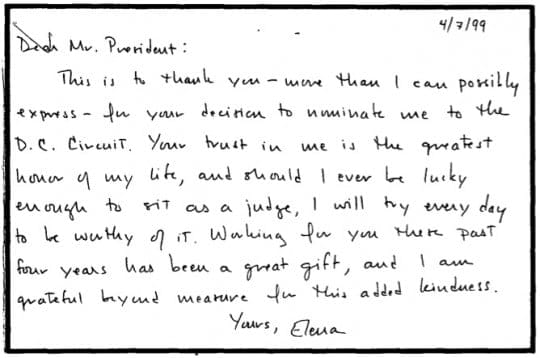 4/7/99
Dear Mr. President:
This is to thank you - more than I can possibly
express - for your decision to nominate me to the
D.C. Circuit. Your trust in me is the greatest
honor of my life, and should I ever be lucky
enough to sit as a judge, I will try every day
to be worthy of it. Working for you these past
four years has been a great gift, and I am
grateful beyond measure for this added kindness.
Yours, Elena